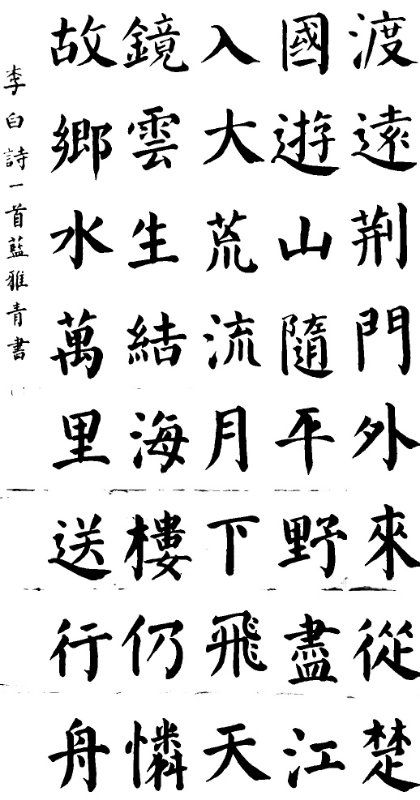 渡遠荆門外來從楚
國遊山隨平野盡江
入大荒流月下飛天
鏡雲生結海樓仍憐
故鄉水萬里送行舟
李白詩一首藍雅青書